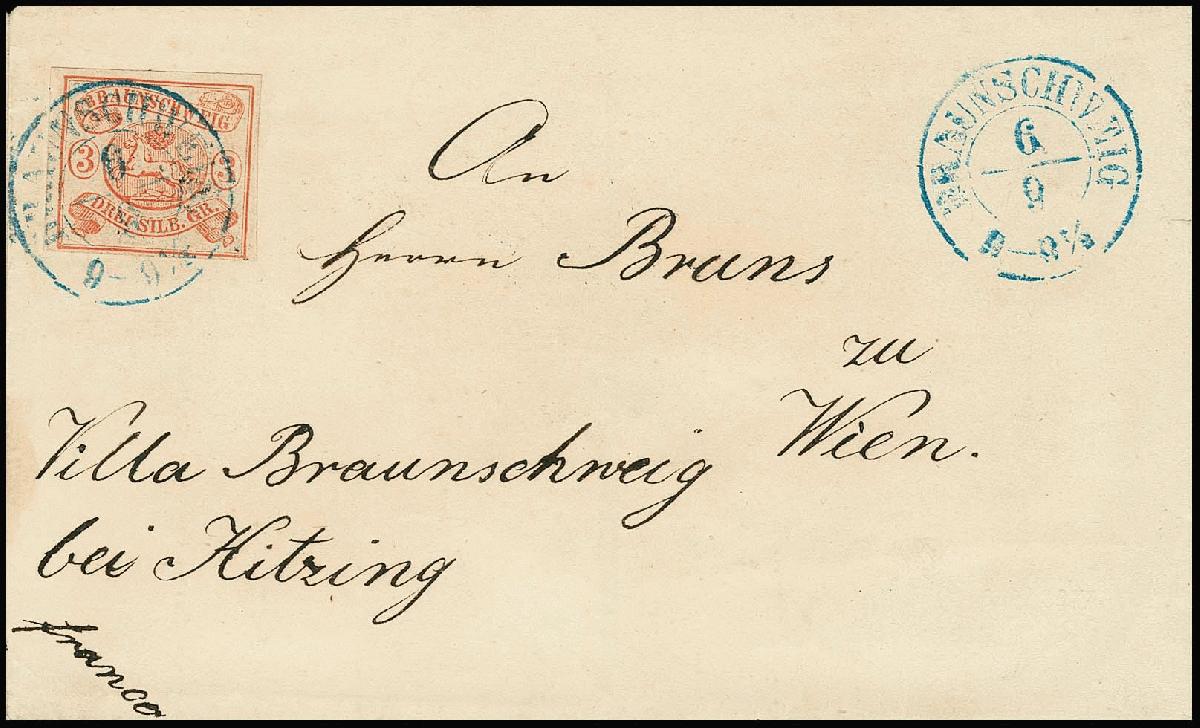 BRAUNSCHWEIG
3 3
DREI SILB. GR.
BRAUNSCHWEIG
6
6 – 9½
BRAUNSCHWEIG
6
9
An
Herrn Bruns
zu
Wien.
Villa Braunschweig
bei Hitzing
franco